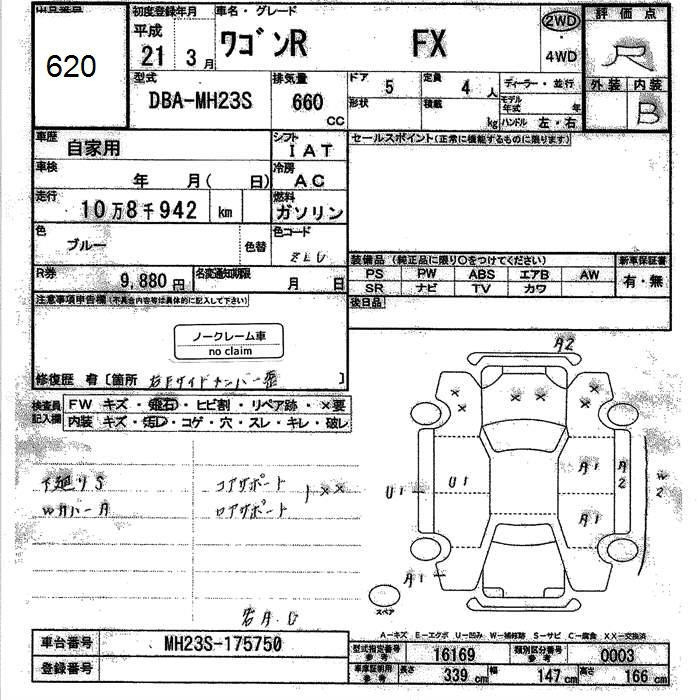 出品番号
620
初度登録年月
平成
21 3月
車名・グレード
ワゴンR FX
2WD
・
4WD
評価点
R
外装 内装
B
型式
DBA-MH23S
排気量
660
cc
ドア 5
形状
定員 4人
積載 kg
ディーラー・並行
モデル年式 年
ハンドル 左・右
車歴
自家用
シフト
IAT
セールスポイント(正常に機能するものに限ります)
車検
年 月( 日)
冷房
AC
走行
10万8千942 km
燃料
ガソリン
色
ブルー
色替
色コード
ZLU
装備品 (純正品に限り○をつけてください)
新車保証書
PS PW ABS エアB AW
SR ナビ TV カワ
有・無
R券
9,880円
名変通知期限
月 日
後日品
注意事項申告欄(不具合内容等は具体的に記入して下さい)
ノークレーム車
no claim
修復歴 有 [箇所
]
検査員記入欄
FW キズ・飛石・ヒビ割・リペア跡・×要
内装 キズ・汚レ・コゲ・穴・スレ・キレ・破レ
下廻りS
WカバーA
コアサポート
ロアサポート
XX
A2
U1
U1
A1
A1
A2
W2
A1
スペア
A―キズ E―エクボ U―凹み W―補修跡 S―サビ C―腐食 XX―交換済
車台番号 MH23S-175750
登録番号
型式指定番号参考 16169
類別区分番号参考 0003
車庫証明用参考 長さ 339cm 幅 147cm 高さ 166cm